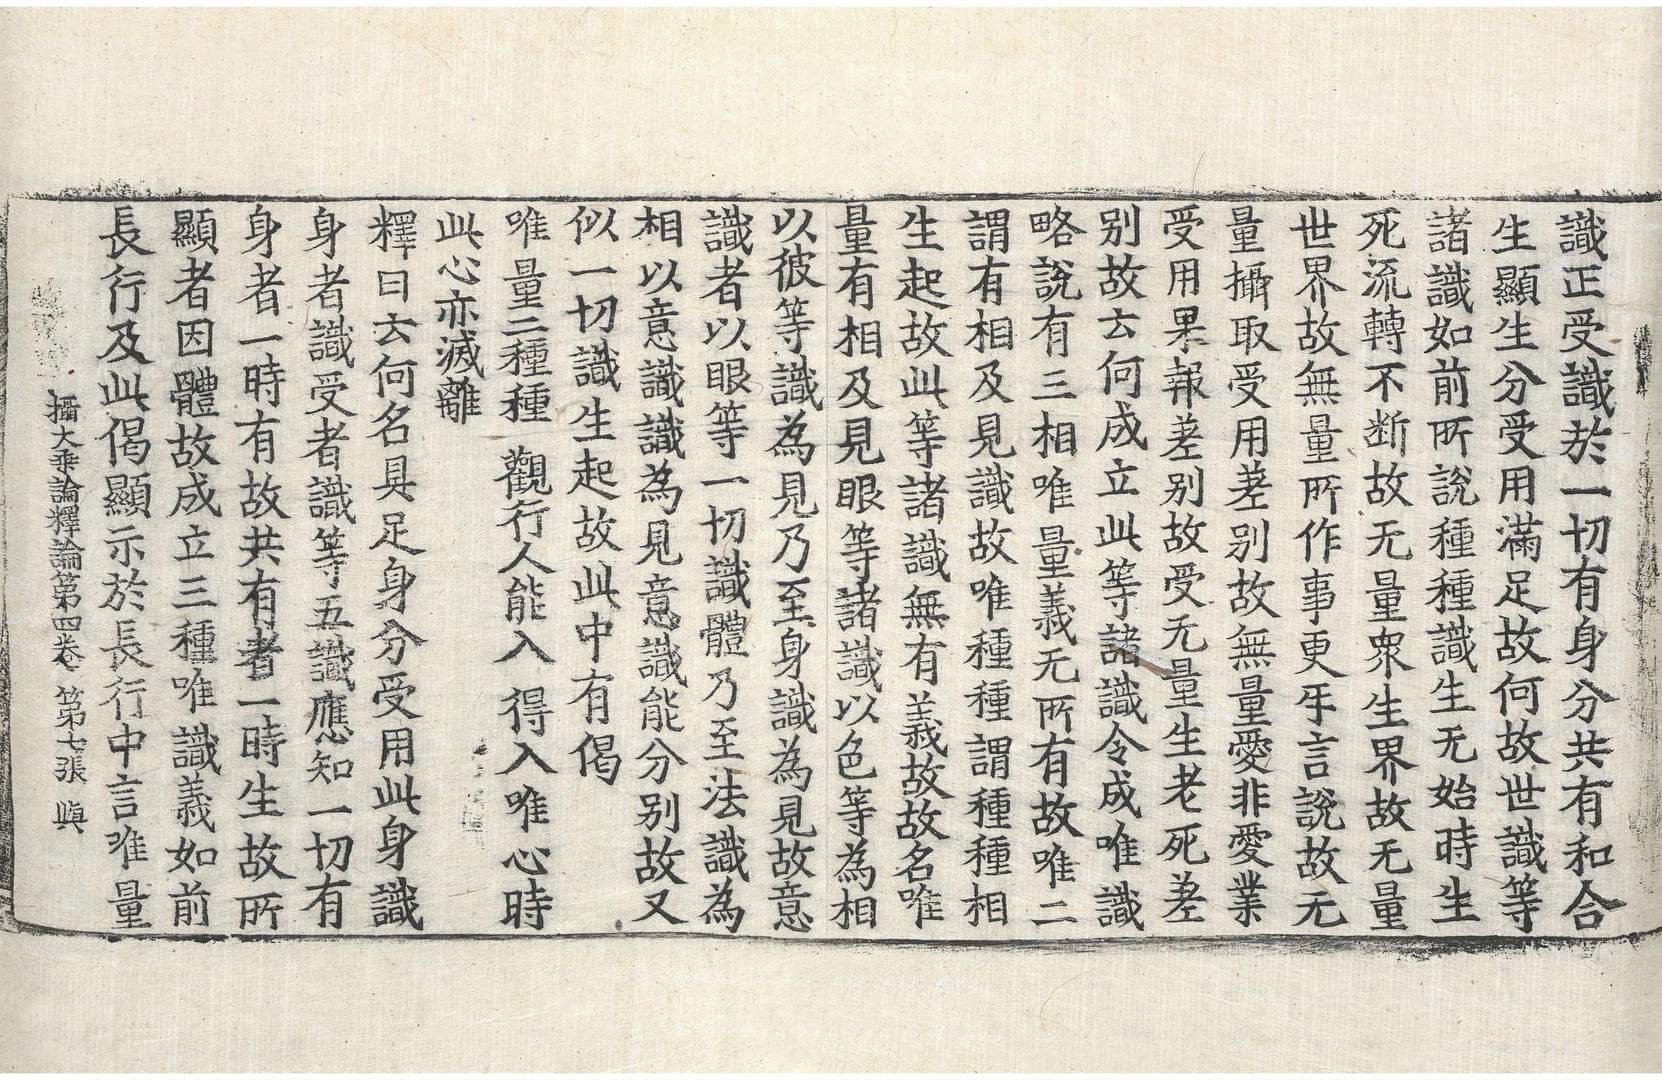 識正受識於一切有身分共有和合
生顯生分受用滿足故何故世識等
諸識如前所說種種識生无始時生
死流轉不断故无量衆生界故无量
世界故無量所作事更㸦言說故无
量攝取受用差別故無量愛非愛業
受用果報差別故受无量生老死差
別故云何成立此等諸識令成唯識
略說有三相唯量義无所有故唯二
謂有相及見識故唯種種謂種種相
生起故此等諸識無有義故故名唯
量有相及見眼等諸識以色等為相
以彼等識為見乃至身識為見故意
識者以眼等一切識體乃至法識為
相以意識識為見意識能分別故又
似一切識生起故此中有偈
唯量二種種 觀行人能入 得入唯心時
此心亦滅離
釋曰云何名具足身分受用此身識
身者識受者識等五識應知一切有
身者一時有故共有者一時生故所
顯者因體故成立三種唯識義如前
長行及此偈顯示於長行中言唯量
攝大乘論釋論第四卷 第七張 與